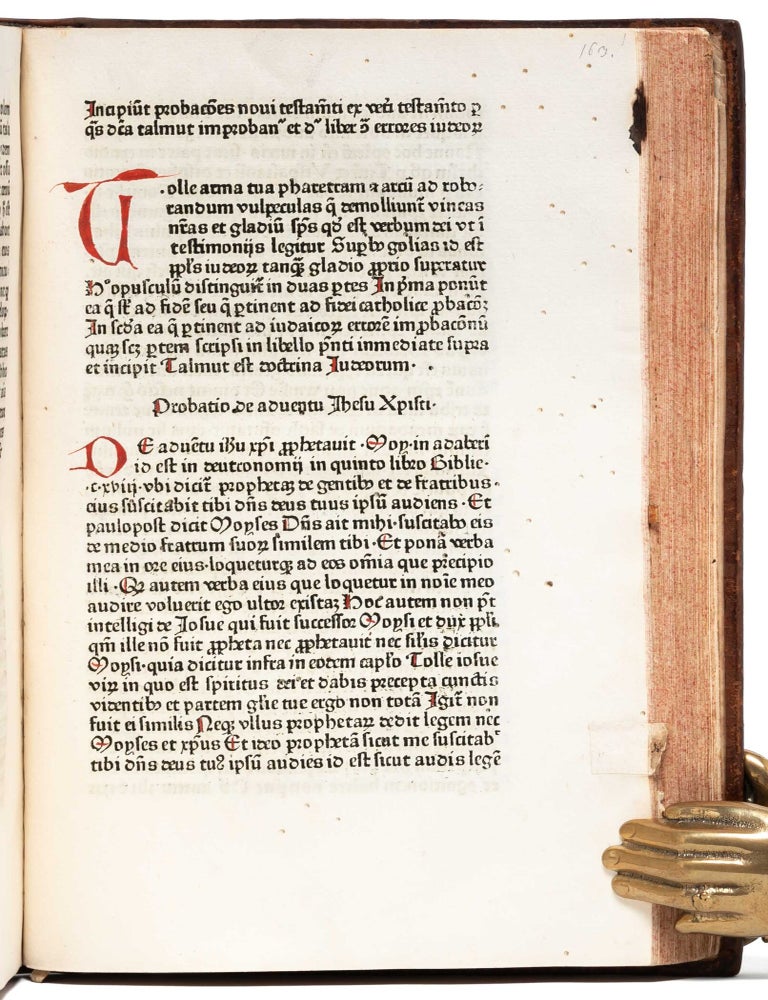 163.
Incipiūt probacōes noui testam̄ti ex veti testam̄to ꝑ
q̄s dc̄a talmut improban̄ et dr̄ liber ɔ̄ errores iudeoꝝ
Tolle arma tua pharetram ⁊ arcū ad robo⸗
randum vulpeculas q̄ demoliunt᷑ vineas
nr̄as et gladiū sp̄s qd̓ est verbum dei vt ī
testimonijs legitur Suꝑbꝰ golias id est
pp̄ls iudeoꝝ tanqꝫ gladio ꝓprio superatur
Hᵒ opusculū distinguit᷑ in duas ꝑtes In pͥma ponūt᷑
ea q̄ st̄ ad fidē seu q̄ ꝑtinent ad fidei catholice ꝓbacōꝫ
In scd̄a ea q̄ ꝑtinent ad iudaicoꝝ errorē imꝓbacōnū
quaꝝ scꝫ ꝑtem scripsi in libello pn̄ti inmediate supra
et incipit Talmut est doctrina Iudeorum·
Probatio de aduentu Ihesu Xpisti·
DE aduētu ih̄u xp̄i ꝓphetauit ·Moy·in adaberī
id est in deutconomij in quinto libro Biblie·
·c·xviij·vbi dicit᷑ prophetaꝫ de gentibꝰ et de fratribus
cius suscitabit tibi dn̄s deus tuus ipsū audiens ·Et
paulopost dicit Moyses Dn̄s ait mihi·suscitabo eis
de medio fratrum suoꝝ similem tibi ·Et ponā verba
mea in ore eius·loqueturqꝫ ad eos om̄ia que precipio
illi ·Qꝛ autem verba eius que loquetur in noīe meo
audire voluerit ego vltor existaꝫ Hoc autem non pt̄
intelligi de Iosue qui fuit successor Moysi et dux ppl̄i
qm̄ ille nō fuit ꝓpheta nec ꝓphetauit nec siłis dicitur
Moysi·quia dicitur infra in eodem capl̓o Tolle iosue
viꝝ in quo est spiritus dei et dabis precepta cunctis
videntibꝰ et partem gl̓ie tue ergo non totā Igit᷑ non
fuit ei similis Neqꝫ vllus prophetaꝝ dedit legem nec
Moyses et xp̄us Et ideo prophetā sicut me suscitabᵗ
tibi dn̄s deus tuꝰ ipsū audies id est sicut audis legē